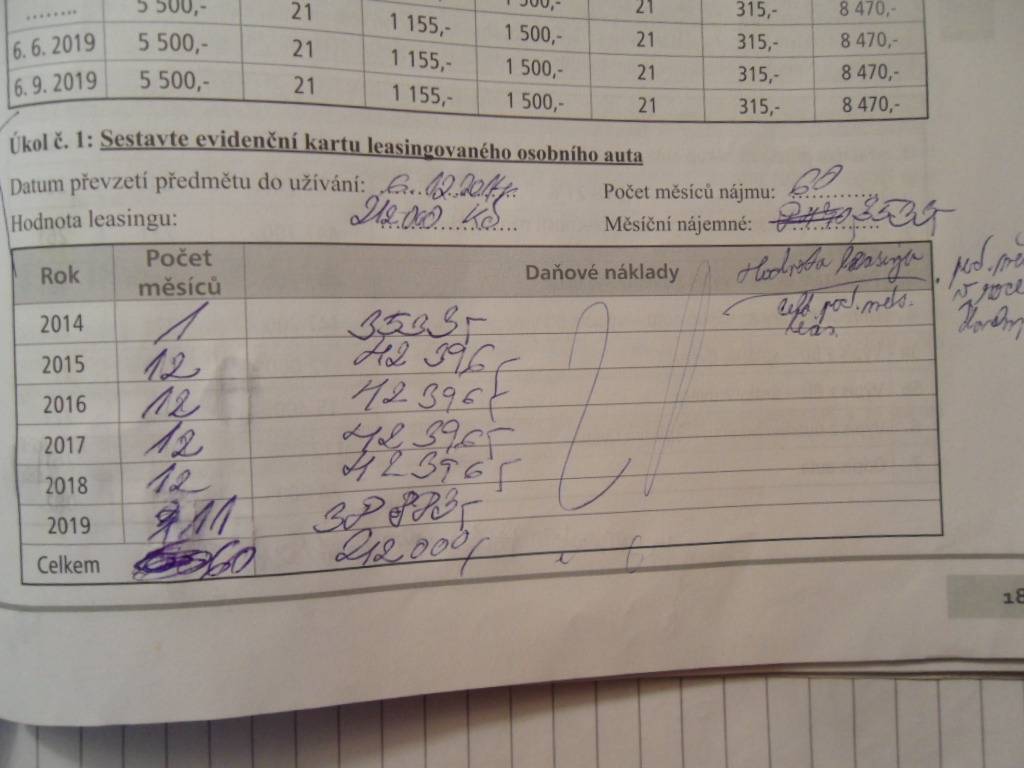 ........ 5 500,- 21 1 155,- 1 500,- 21 315,- 8 470,-
6. 6. 2019 5 500,- 21 1 155,- 1 500,- 21 315,- 8 470,-
6. 9. 2019 5 500,- 21 1 155,- 1 500,- 21 315,- 8 470,-
Úkol č. 1: Sestavte evidenční kartu leasingovaného osobního auta
Datum převzetí předmětu do užívání: 6. 12. 2014 Počet měsíců nájmu: 60
Hodnota leasingu: 212 000 Kč Měsíční nájemné: 3533,-
Rok Počet měsíců Daňové náklady Hodnota leasingu
2014 1 3533,-
2015 12 42 396,-
2016 12 42 396,-
2017 12 42 396,-
2018 12 42 396,-
2019 11 38 883,-
Celkem 60 212 000,-
18